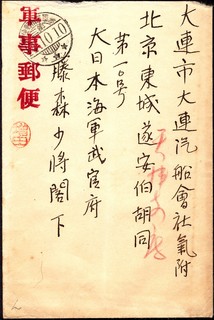 大連市大連汽船會社氣附
北京東城遂安伯胡同
第一〇号
大日本海軍武官府
藤森少將閣下
軍事郵便